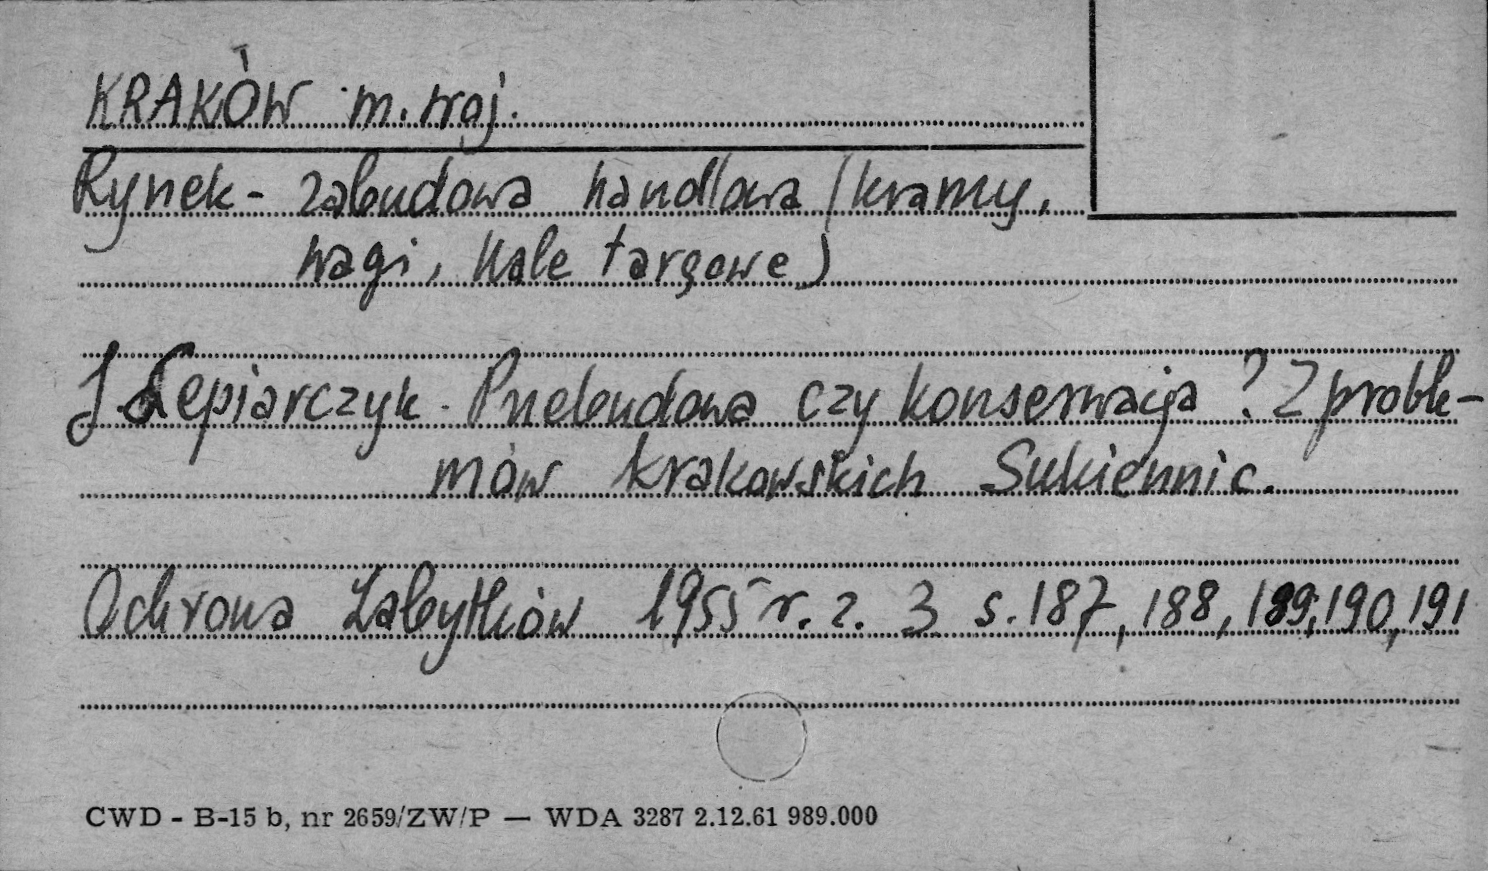 KRAKÓW m. woj.
Rynek - zabudowa handlowa (kramy,
wagi, hale targowe)
J. Lepiarczyk - Przebudowa czy konserwacja? Z proble-
mów krakowskich Sukiennic.
Ochrona Zabytków 1955 r. z. 3 s. 187, 188, 189, 190, 191
CWD - B-15 b, nr 2659/ZW/P — WDA 3287 2.12.61 989.000